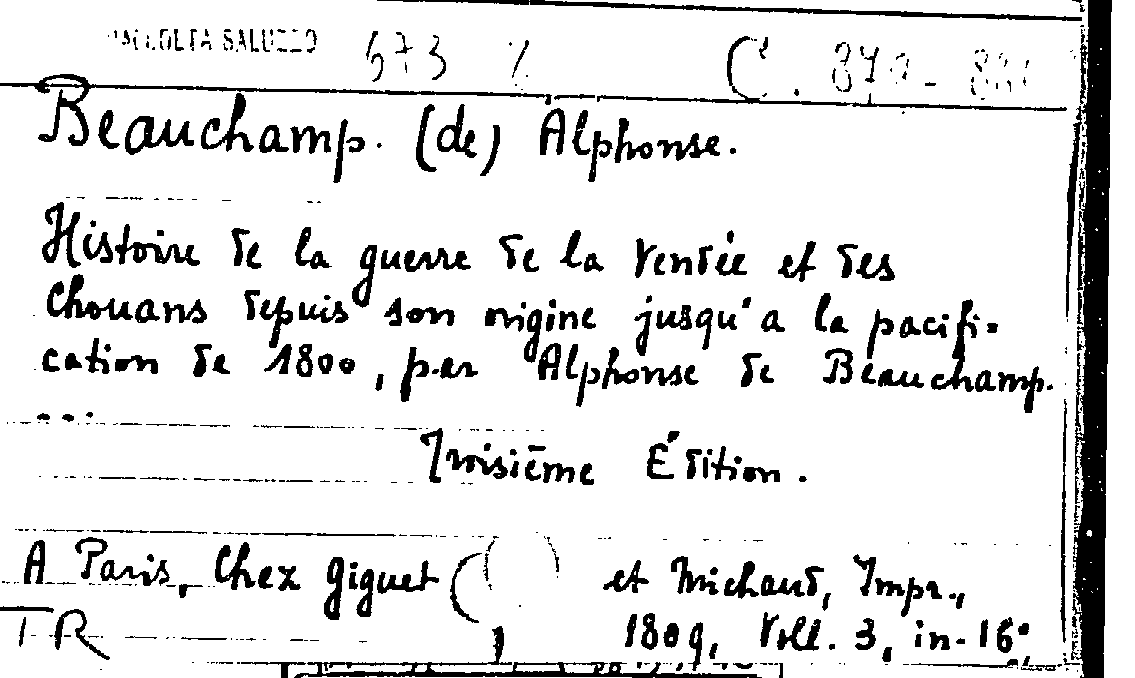 RACCOLTA SALUZZO 673 % C. 879-881
Beauchamp. (de) Alphonse.
Histoire de la guerre de la Vendée et des
Chouans depuis son origine jusqu'a la pacifi-
cation de 1800, par Alphonse de Beauchamp.
Troisième Édition.
A Paris, Chez Giguet et Michaud, Impr.,
TR 1809, Voll. 3, in-16°,